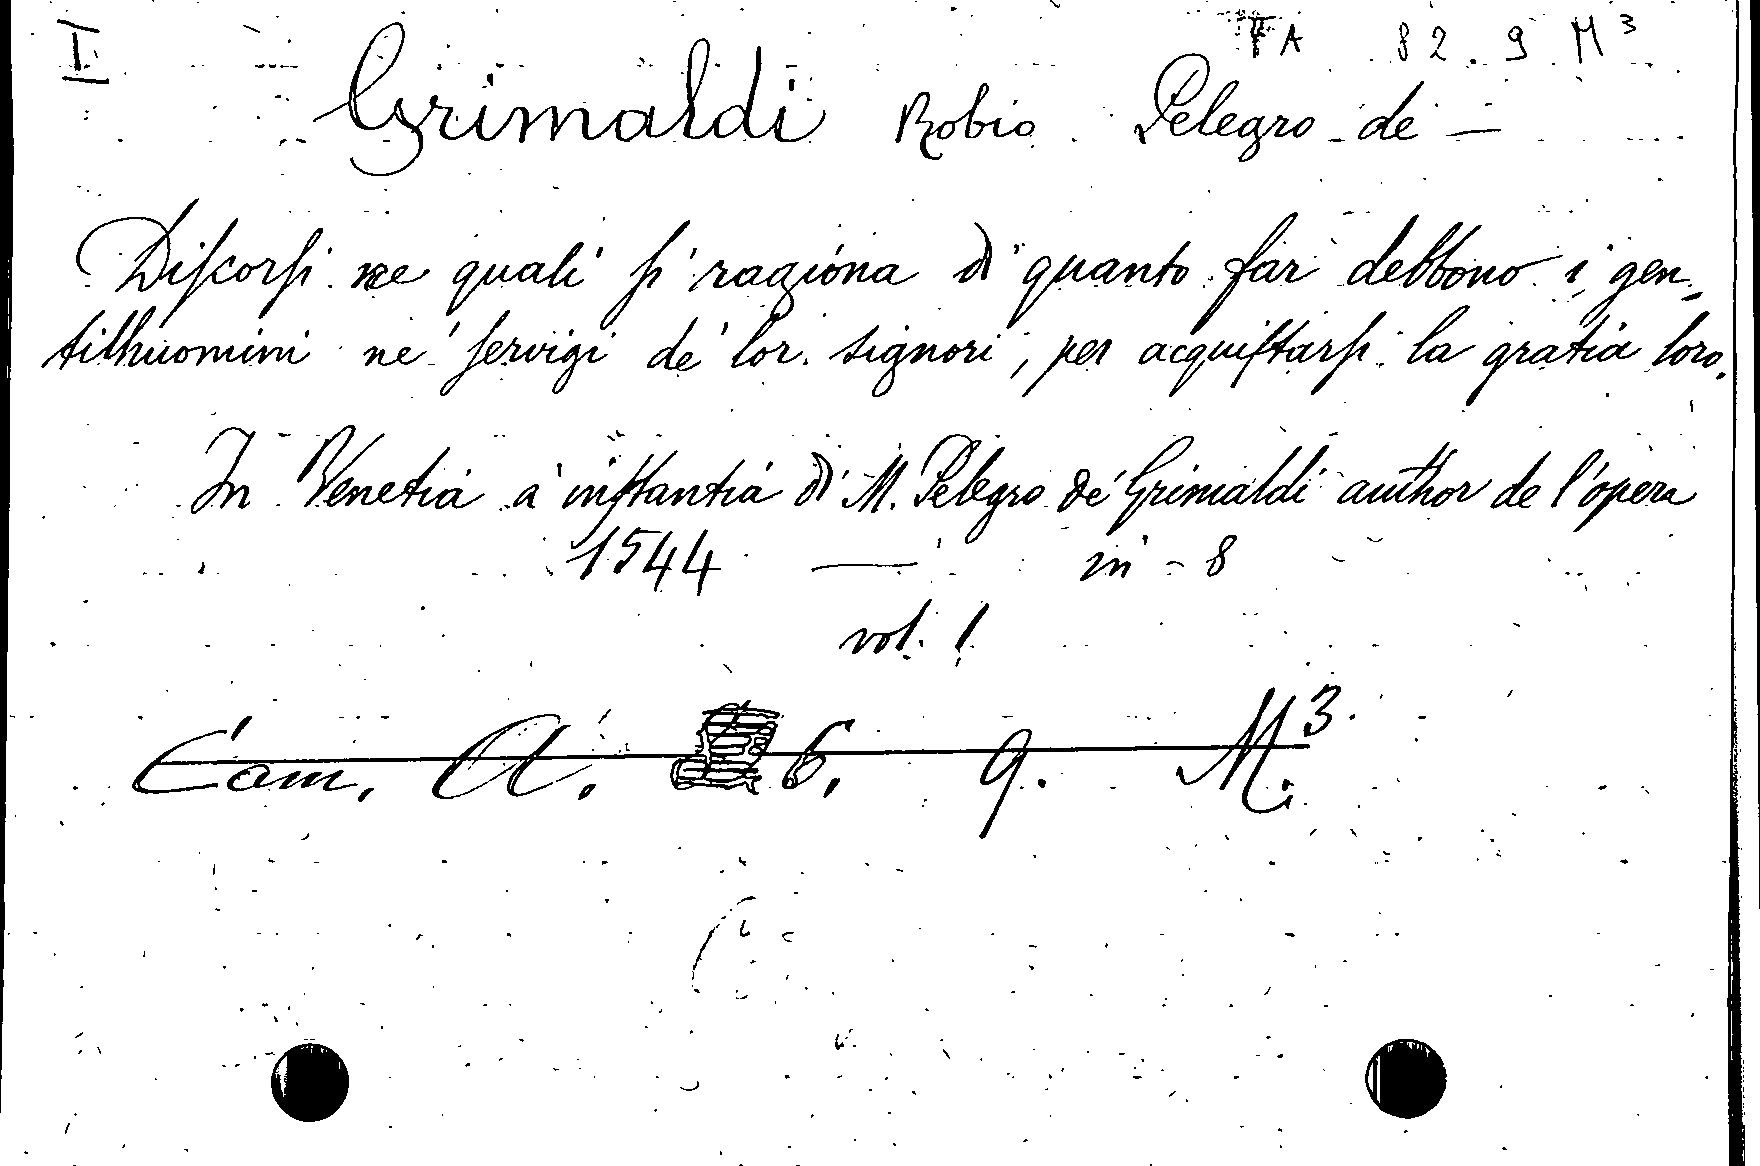 I FA 82.9 M³
Grimaldi Robio Pelegro de —
Diſcorſi ne quali ſi ragiona di quanto far debbono i gen-
tilhuomini ne' ſervigi de' lor signori, per acquiſtarſi la gratia loro.
In Venetia a inſtantia di M. Pelegro de' Grimaldi author de l'opera
1544 — in-8
vol. 1
Cam. A. 6. 9. M.³